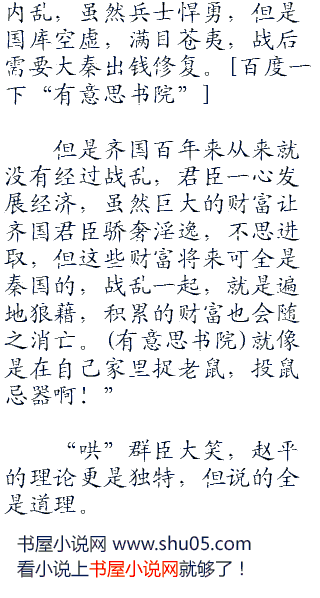 内乱，虽然兵士悍勇，但是
国库空虚，满目苍夷，战后
需要大秦出钱修复。[百度一
下“有意思书院”]
但是齐国百年来从来就
没有经过战乱，君臣一心发
展经济，虽然巨大的财富让
齐国君臣骄奢淫逸，不思进
取，但这些财富将来可全是
秦国的，战乱一起，就是遍
地狼藉，积累的财富也会随
之消亡。(有意思书院)就像
是在自己家里捉老鼠，投鼠
忌器啊！”
“哄”群臣大笑，赵平
的理论更是独特，但说的全
是道理。
书屋小说网 www.shu05.com
看小说上书屋小说网就够了！